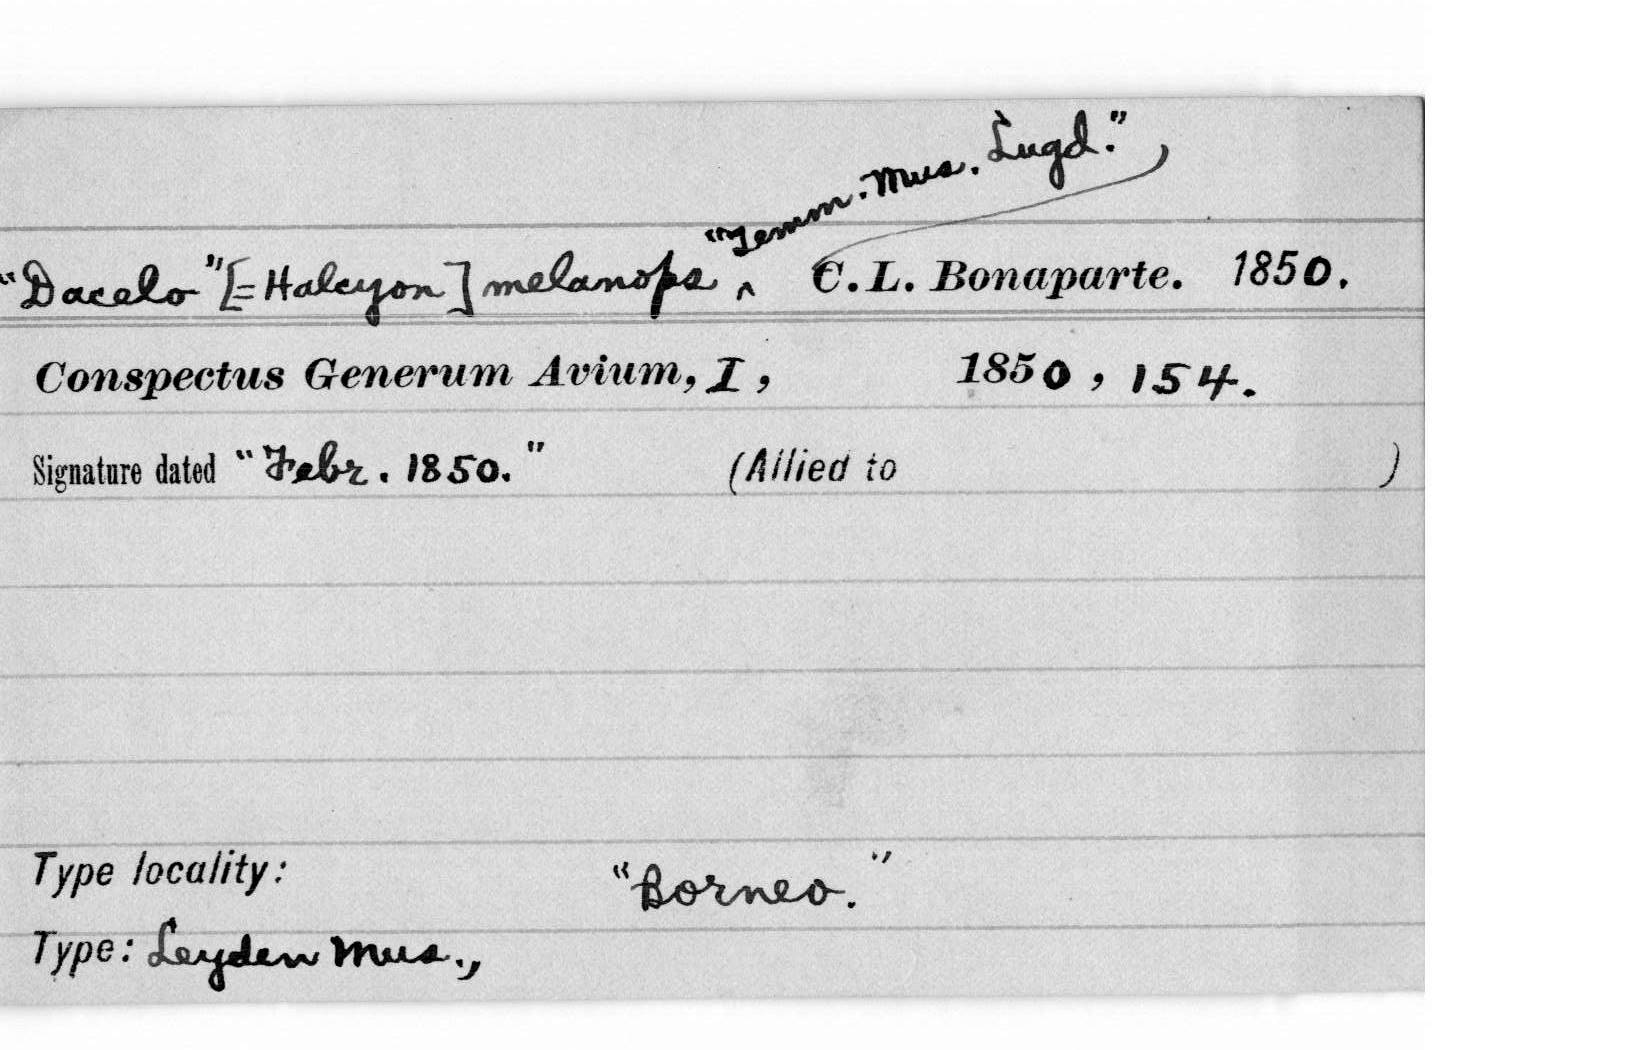 "Temm. Mus. Lugd."
"Dacelo" [=Halcyon] melanops ^ C.L. Bonaparte. 1850.
Conspectus Generum Avium, I, 1850, 154.
Signature dated "Febr. 1850." (Allied to )
Type locality: "Borneo."
Type: Leyden Mus.,